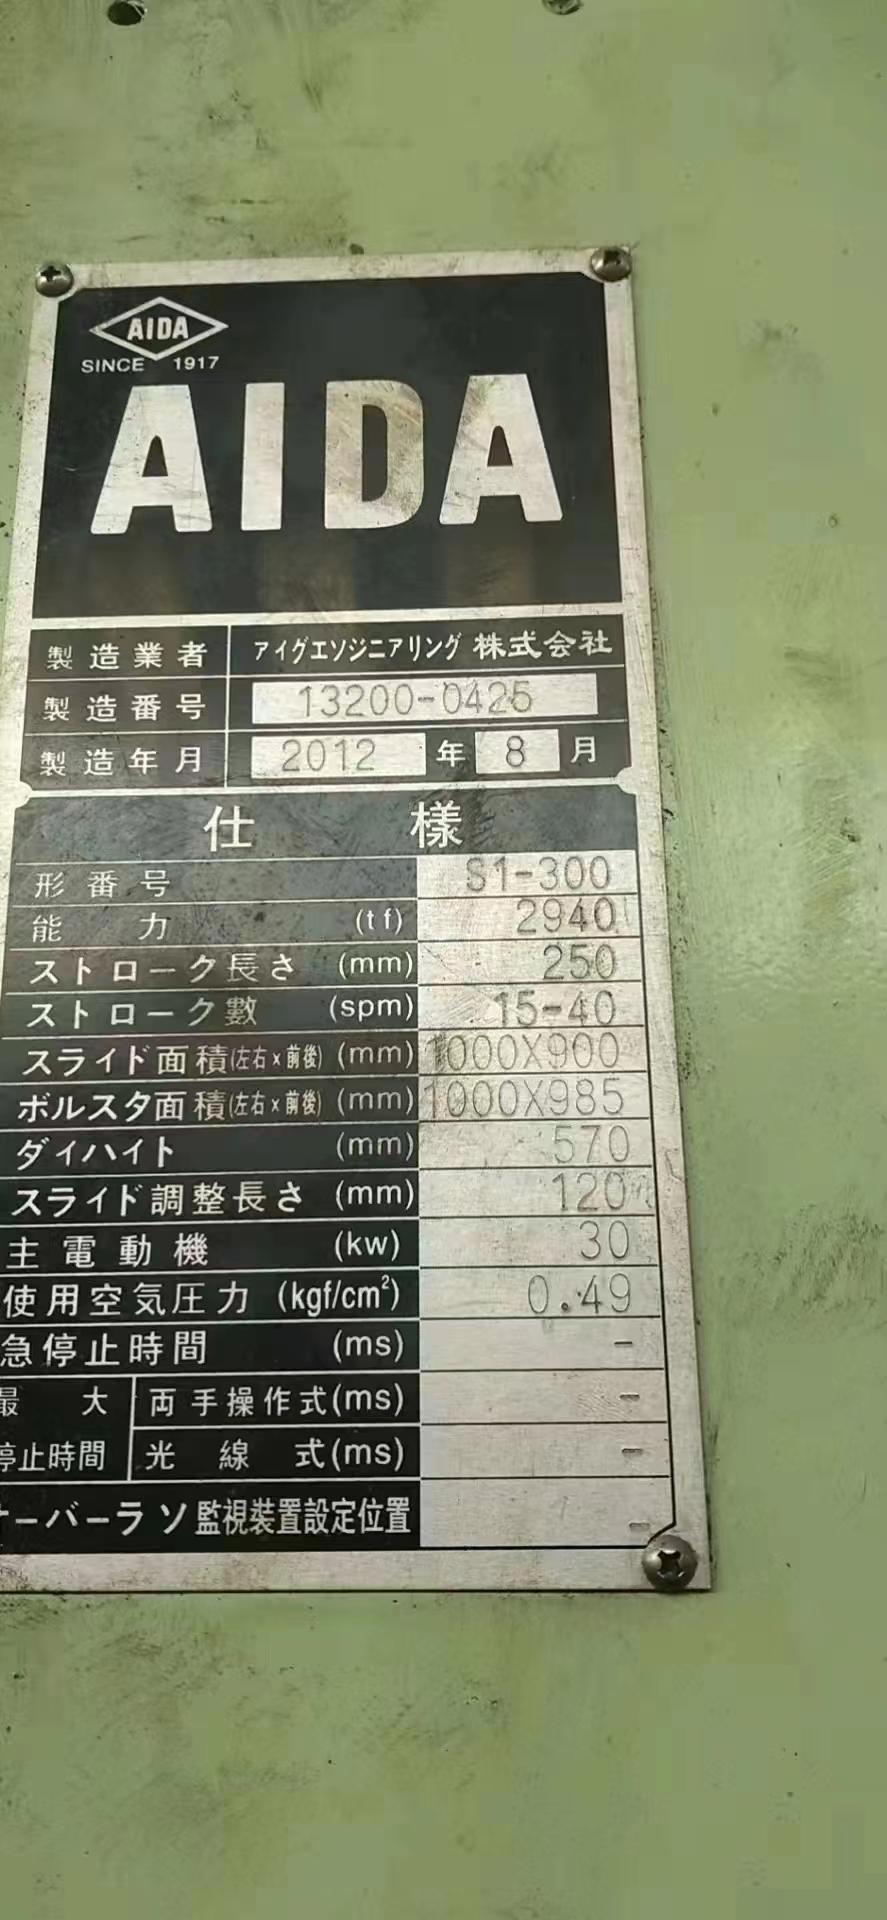 AIDA
SINCE 1917
AIDA
製造業者 アイグエソジニアリング 株式会社
製造番号 13200-0425
製造年月 2012 年 8 月
仕様
形番号 S1-300
能力 (tf) 2940
ストローク長さ (mm) 250
ストローク數 (spm) 15-40
スライド面積(左右×前後) (mm) 1000X900
ボルスタ面積(左右×前後) (mm) 1000X985
ダイハイト (mm) 570
スライド調整長さ (mm) 120
主電動機 (kw) 30
使用空気圧力 (kgf/cm²) 0.49
急停止時間 (ms) -
最大 両手操作式(ms) -
停止時間 光線式(ms) -
オーバーラソ監視装置設定位置 -